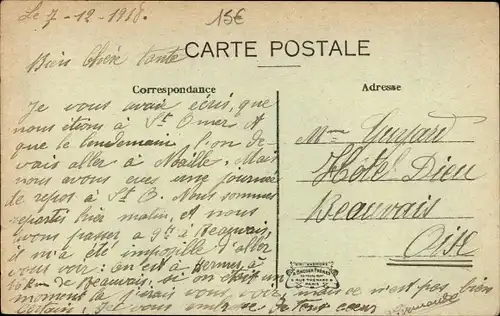 Le 7-12-1918.
15€
CARTE POSTALE
Bien Chère tante
Correspondance
Adresse
Je vous avais écris, que
nous étions à St Omer et
que le lendemain l'on de-
vais aller à Noaille. Mais
nous avons eues une journée
de repos à St O. Nous sommes
repartis hier matin, et nous
avons passer a 9h à Beauvais,
il m'a été impossible d'aller
vous voir: on est à Hermes, à
16 km de Beauvais, si on était un
moment là j'irais vous voir, mais ce n'est pas bien
certain; Je vous embrasse de tout cœur
Fernande
Mme Guyard
Hôtel Dieu
Beauvais
Oise
PARIS